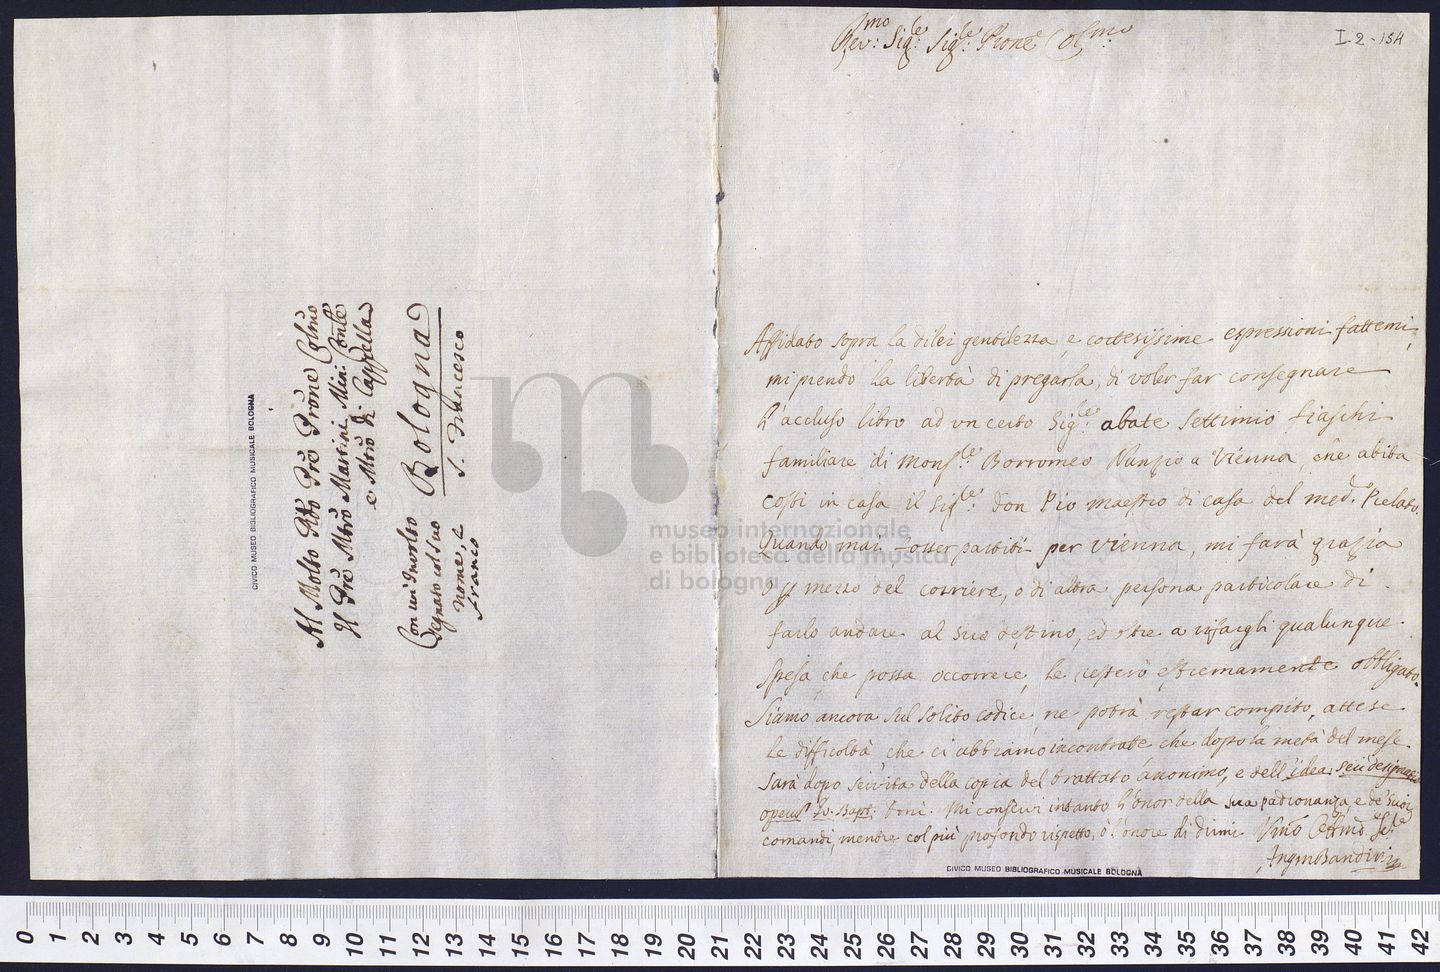 Al Molto Rdo Pre Prone Colmo
Il Pre Mtro Martini Min: Conle
e Mtro di Cappella
Bologna
S. Francesco
Con un Involto
Segnato col suo
nome, e
franco
CIVICO MUSEO BIBLIOGRAFICO MUSICALE BOLOGNA
I-2-154
Rev:mo Sig:le Sig:le Prone Col:mo
Affidato sopra la dilei gentilezza, e cortesissime espressioni fattemi,
mi prendo la libertà di pregarla, di voler far consegnare
l'accluso libro ad un certo Sig:le abate Settimio fiaschi
familiare di Mons:le Borromeo Nunzio a Vienna, che abita
costi in casa il Sig:le Don Pio maestro di casa del med.o Prelato.
Quando mai fosser partiti per Vienna, mi farà grazia
o p mezzo del corriere, o di altra persona particolare di
farlo andare al suo destino, ed oltre a rifargli qualunque
spesa che possa occorrere, le resterò estremamente obbligato.
Siamo ancora sul solito codice, ne potrà restar compito, attese
le difficoltà che ci abbiamo incontrate che dopo la metà del mese.
Sarà dopo servita della copia del trattato anonimo, e dell'idea seu designatio
operum Io. Bapt: Doni. Mi conservi intanto l'onor della sua padronanza, e de' suoi
comandi, mentre col più profondo rispetto, ò l'onore di dirmi
AngmBandini
CIVICO MUSEO BIBLIOGRAFICO MUSICALE BOLOGNA
museo internazionale
e biblioteca della musica
di bologna
0 1 2 3 4 5 6 7 8 9 10 11 12 13 14 15 16 17 18 19 20 21 22 23 24 25 26 27 28 29 30 31 32 33 34 35 36 37 38 39 40 41 42